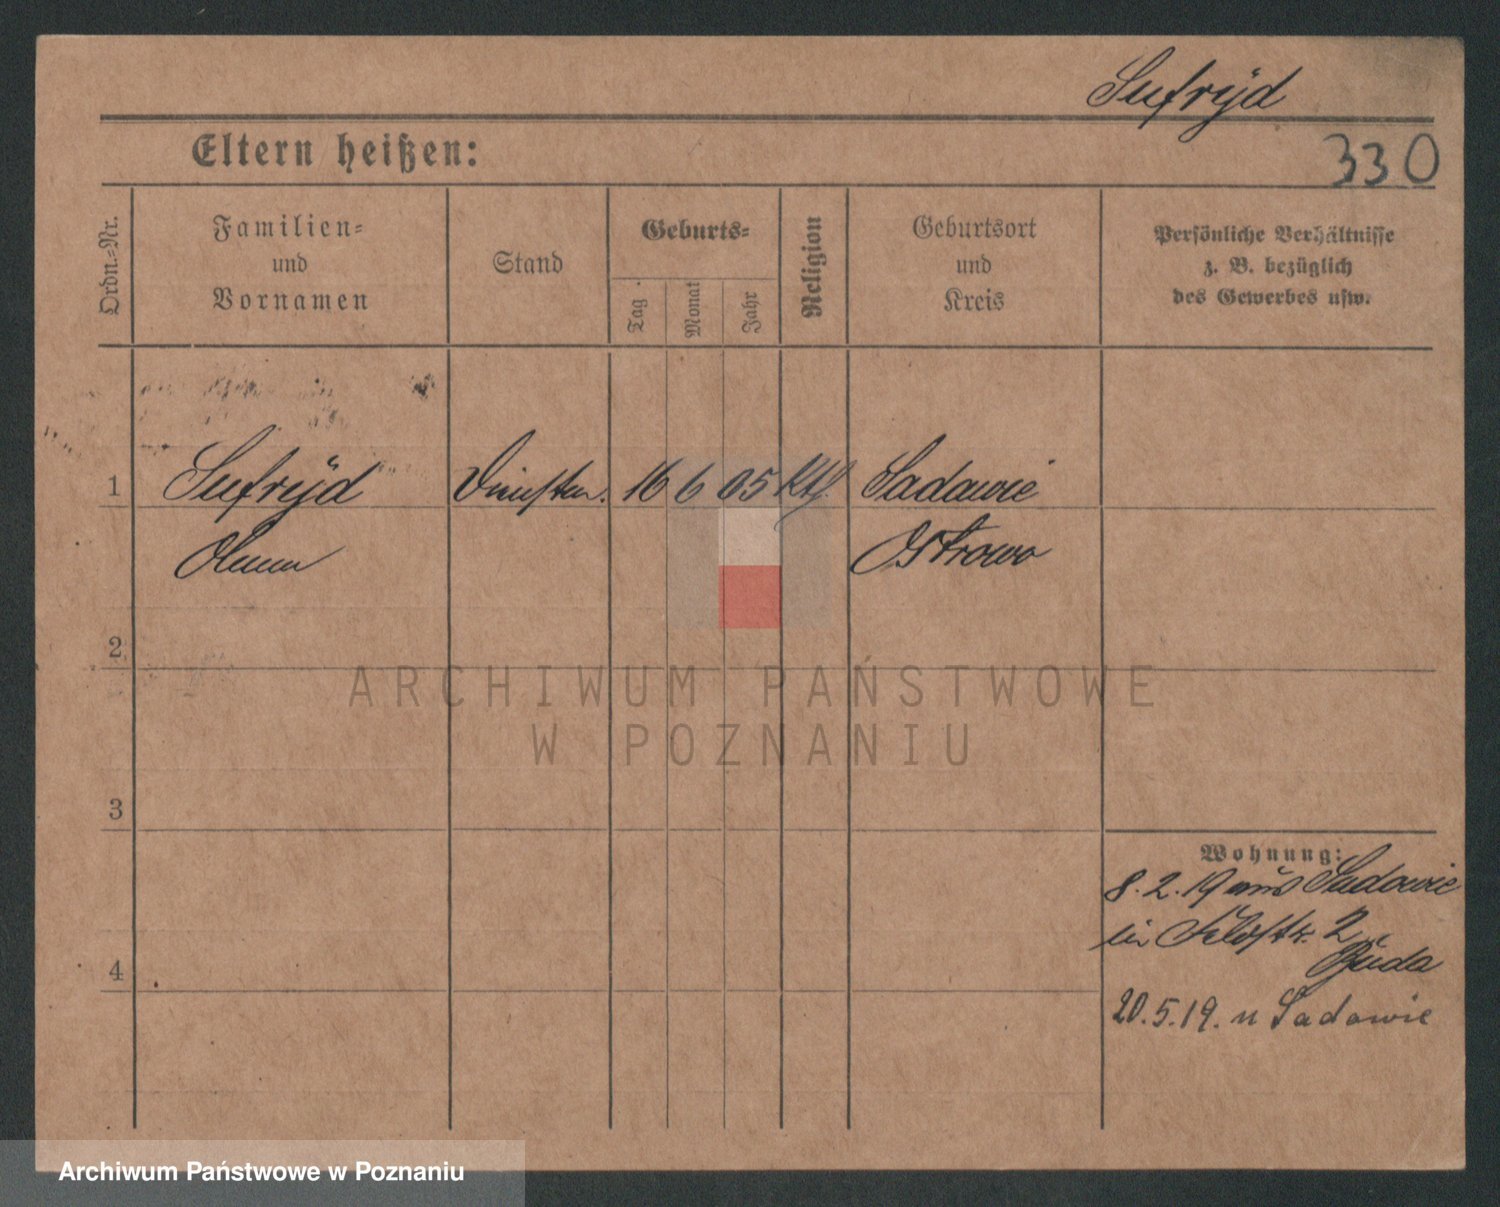 Sufryd
330
Eltern heißen:
Ordn.-Nr.
Familien-
und
Vornamen
Stand
Geburts-
Tag
Monat
Jahr
Religion
Geburtsort
und
Kreis
Persönliche Verhältnisse
z. B. bezüglich
des Gewerbes usw.
1 Sufryd 16 6 05 Kth. Sadowie
Ostrowo
2
3
4
ARCHIWUM PAŃSTWOWE
W POZNANIU
Wohnung:
8.2.19 aus Sadowie
in Feldstr. 2
20.5.19. n Sadowie
Archiwum Państwowe w Poznaniu